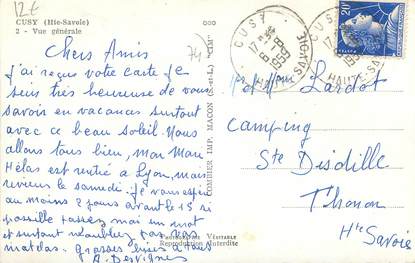 12€
CUSY (Hte-Savoie)
2 - Vue générale
74
Chers Amis
J'ai reçus votre carte Je
suis très heureuse de vous
savoir en vacances surtout
avec ce beau soleil. Nous
allons tous bien, mon Mari
Hélas est rentré a Lyon, mais
reviens le samedi. Je vous espère
au moins 2 jours avant le 15 si
possible passez moi un mot
et surtout n'oubliez pas vos
matelas. Grosses bises a tous
A. Desvignes
COMBIER IMP. MACON (S.-et-L.) "CIM"
Photographie Véritable
Reproduction Interdite
CUSY
HAUTE-SAVOIE
20F
Mr Mme Lardot
Camping
Ste Disdille
Thonon
Hte Savoie